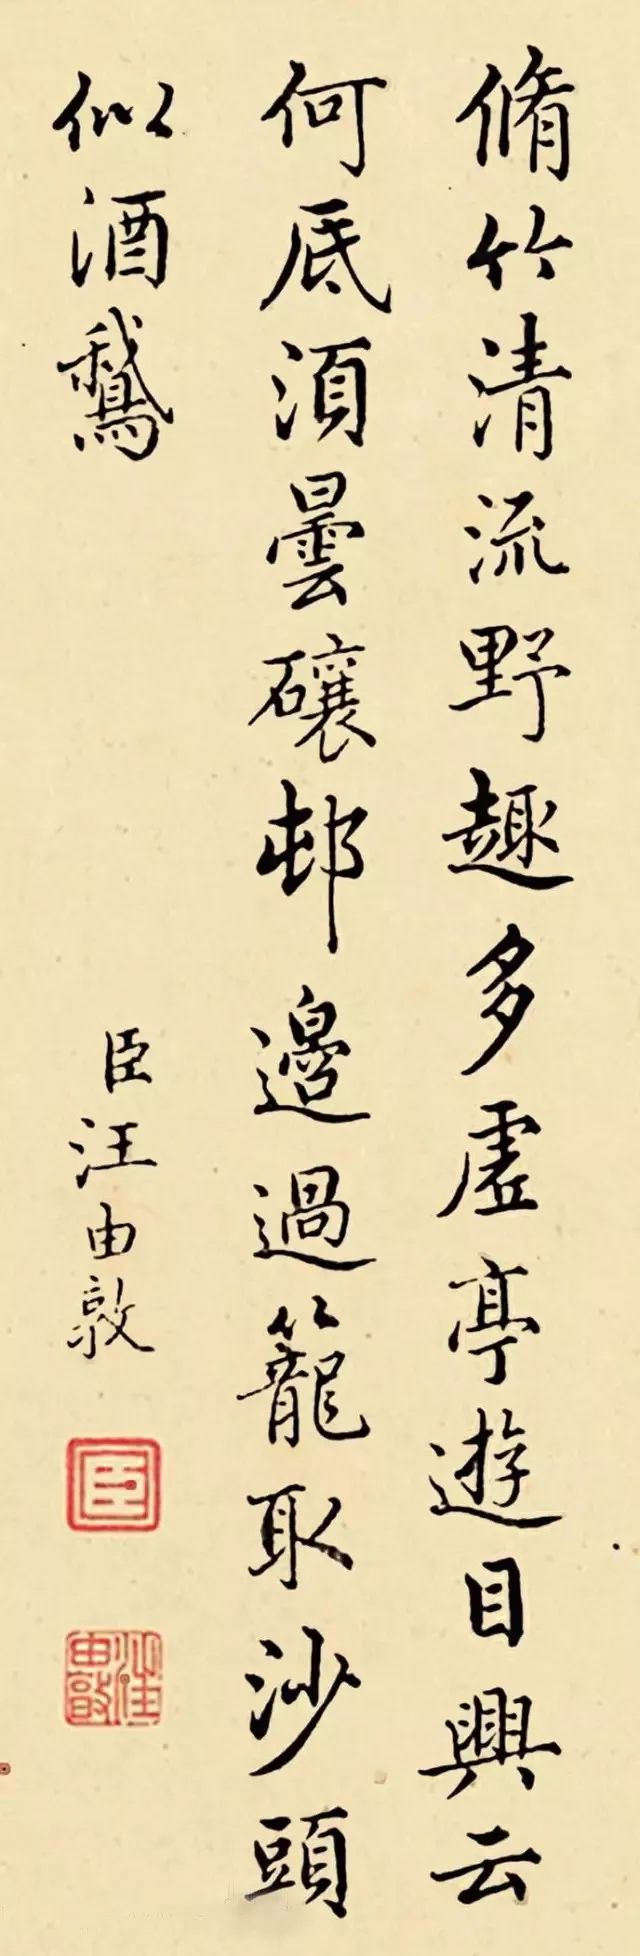 脩竹清流野趣多虛亭遊目興云
何底須曇礦邨邊過籠取沙頭
似酒鵞
臣汪由敦
臣
汪由敦